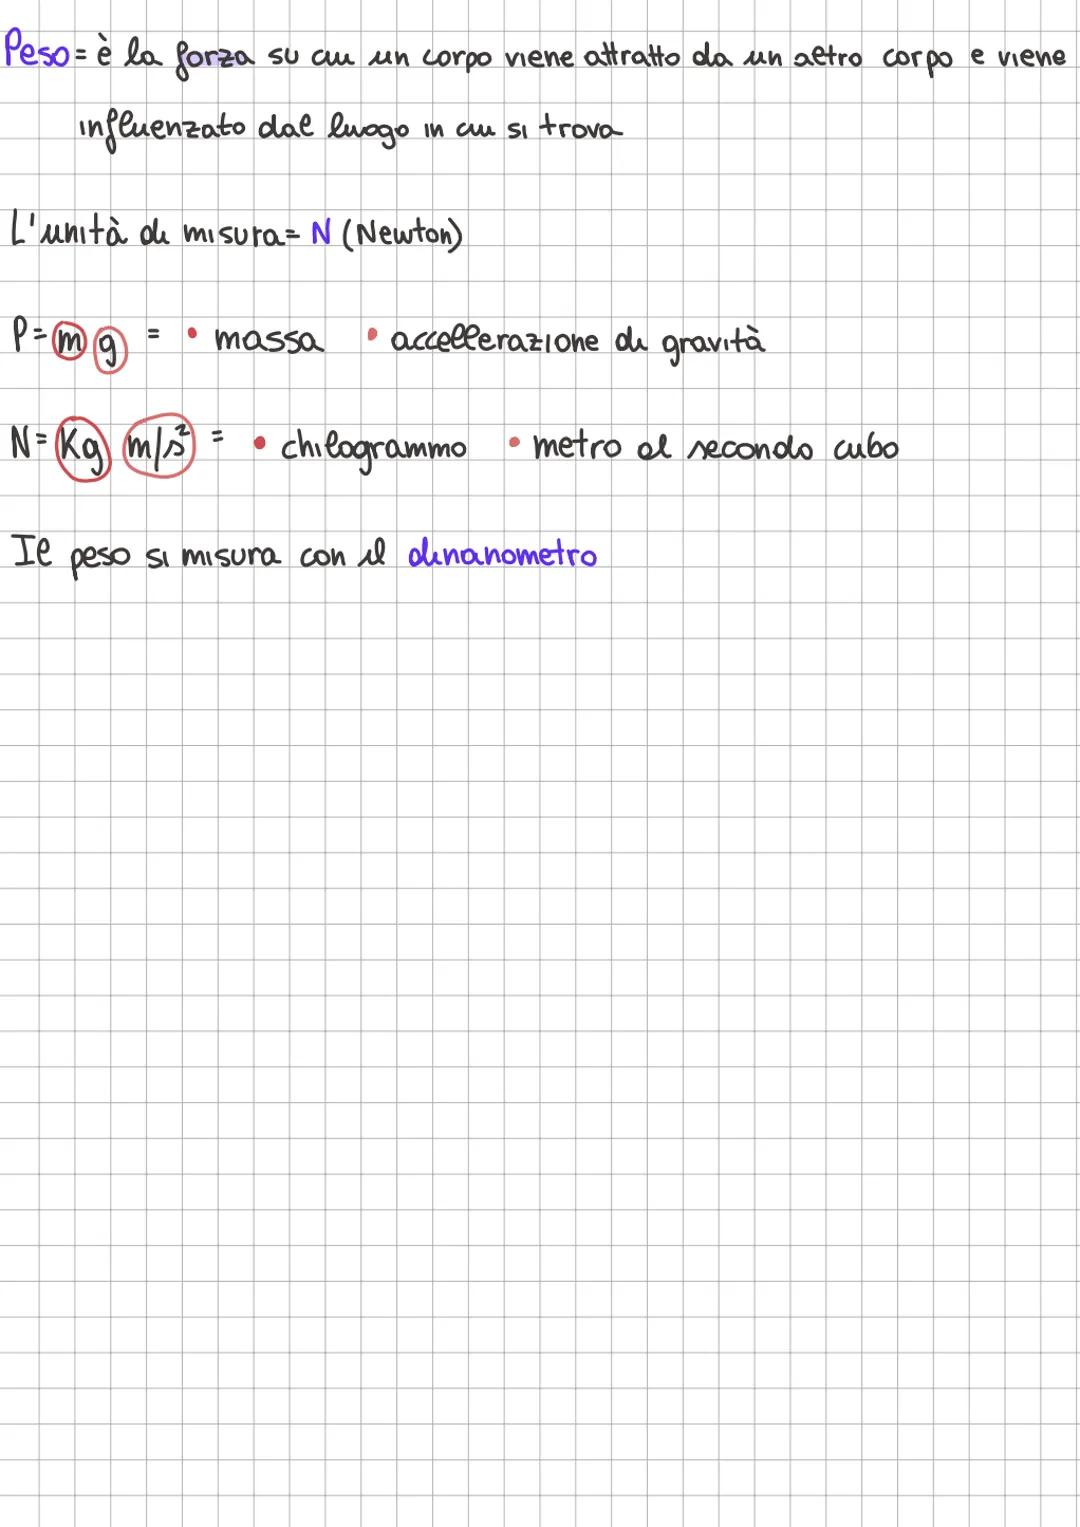 Peso = è la forza su cui un corpo viene attratto da un altro corpo e viene
influenzato dal luogo in cui si trova
L'unità di misura = N (Newton)
P = m g = • massa • accellerazione di gravità
N = Kg m/s² = • chilogrammo • metro al secondo cubo
Il peso si misura con il dinanometro